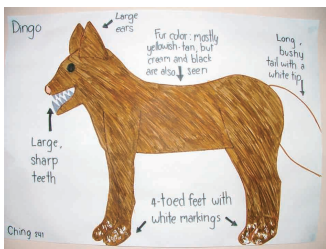 Dingo
Large
ears
Fur color: mostly
yellowish-tan, but
cream and black
are also seen
Long,
bushy
tail with a
white tip
Large,
sharp
teeth
4-toed feet with
white markings